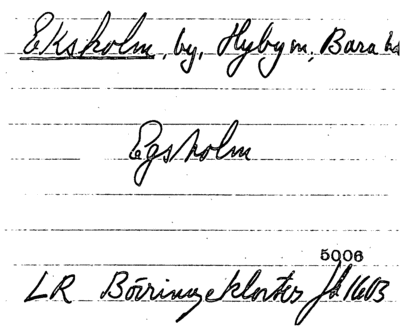 Eksholm, by, Hyby sn, Bara hd
Egsholm
5006
LR Börringekloster Jb 1603